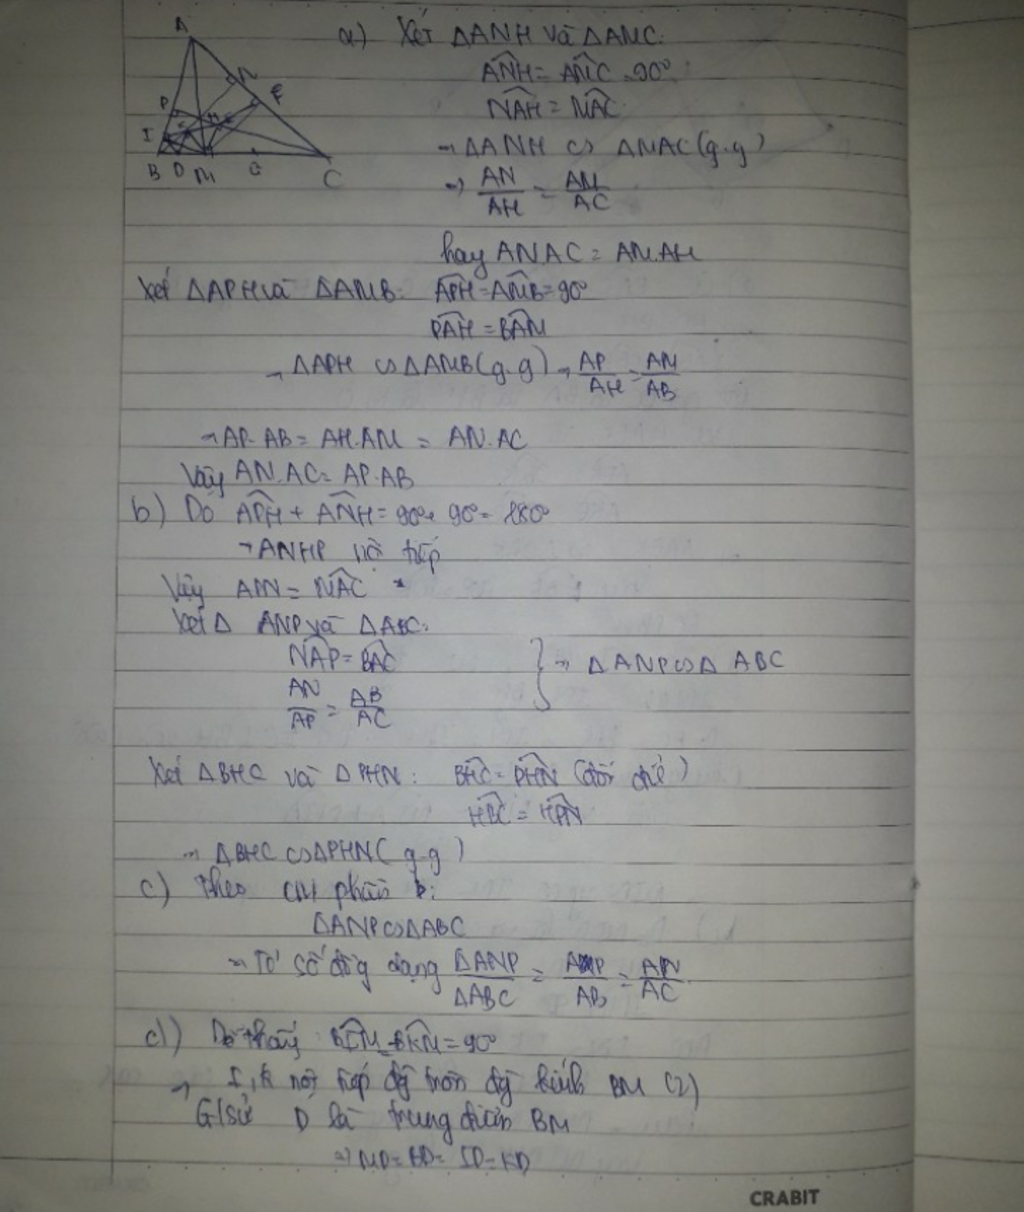 a) Xét ΔANH và ΔAMC:
A
N
P
F
H
I
B D M G C
ANH = AMC = 90°
NAH = MAC
→ ΔANH ∽ ΔMAC (g.g)
→ AN/AH = AM/AC
hay AN.AC = AM.AH
Xét ΔAPH và ΔAMB: APH = AMB = 90°
PAH = BAM
→ ΔAPH ∽ ΔAMB (g.g) → AP/AH = AM/AB
→ AP.AB = AH.AM = AN.AC
Vậy AN.AC = AP.AB
b) Do APH + ANH = 90° + 90° = 180°
→ ANHP nội tiếp
Vậy APN = NAC
Xét Δ ANP và ΔABC:
NAP = BAC
AN/AP = AB/AC } → ΔANP ∽ Δ ABC
Xét ΔBHC và ΔPHN: BHC = PHN (đối đỉnh)
HBC = HPN
→ ΔBHC ∽ ΔPHN (g-g)
c) Theo CM phần b:
ΔANP ∽ ΔABC
→ Tỉ số đồng dạng ΔANP/ΔABC = /AB = AN/AC
d) Dễ thấy BIM = BKM = 90°
→ I, K nội tiếp đg tròn đg kính BM (2)
G/sử D là trung điểm BM
→ MD = BD = ID = KD
CRABIT